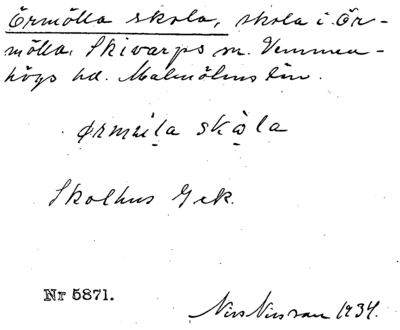 Örmölla skola, skola i Ör-
mölla, Skivarps sn. Vemmen-
högs hd. Malmöhus län.
Skolhus
Nr 5871.
Nils Nilsson 1934.